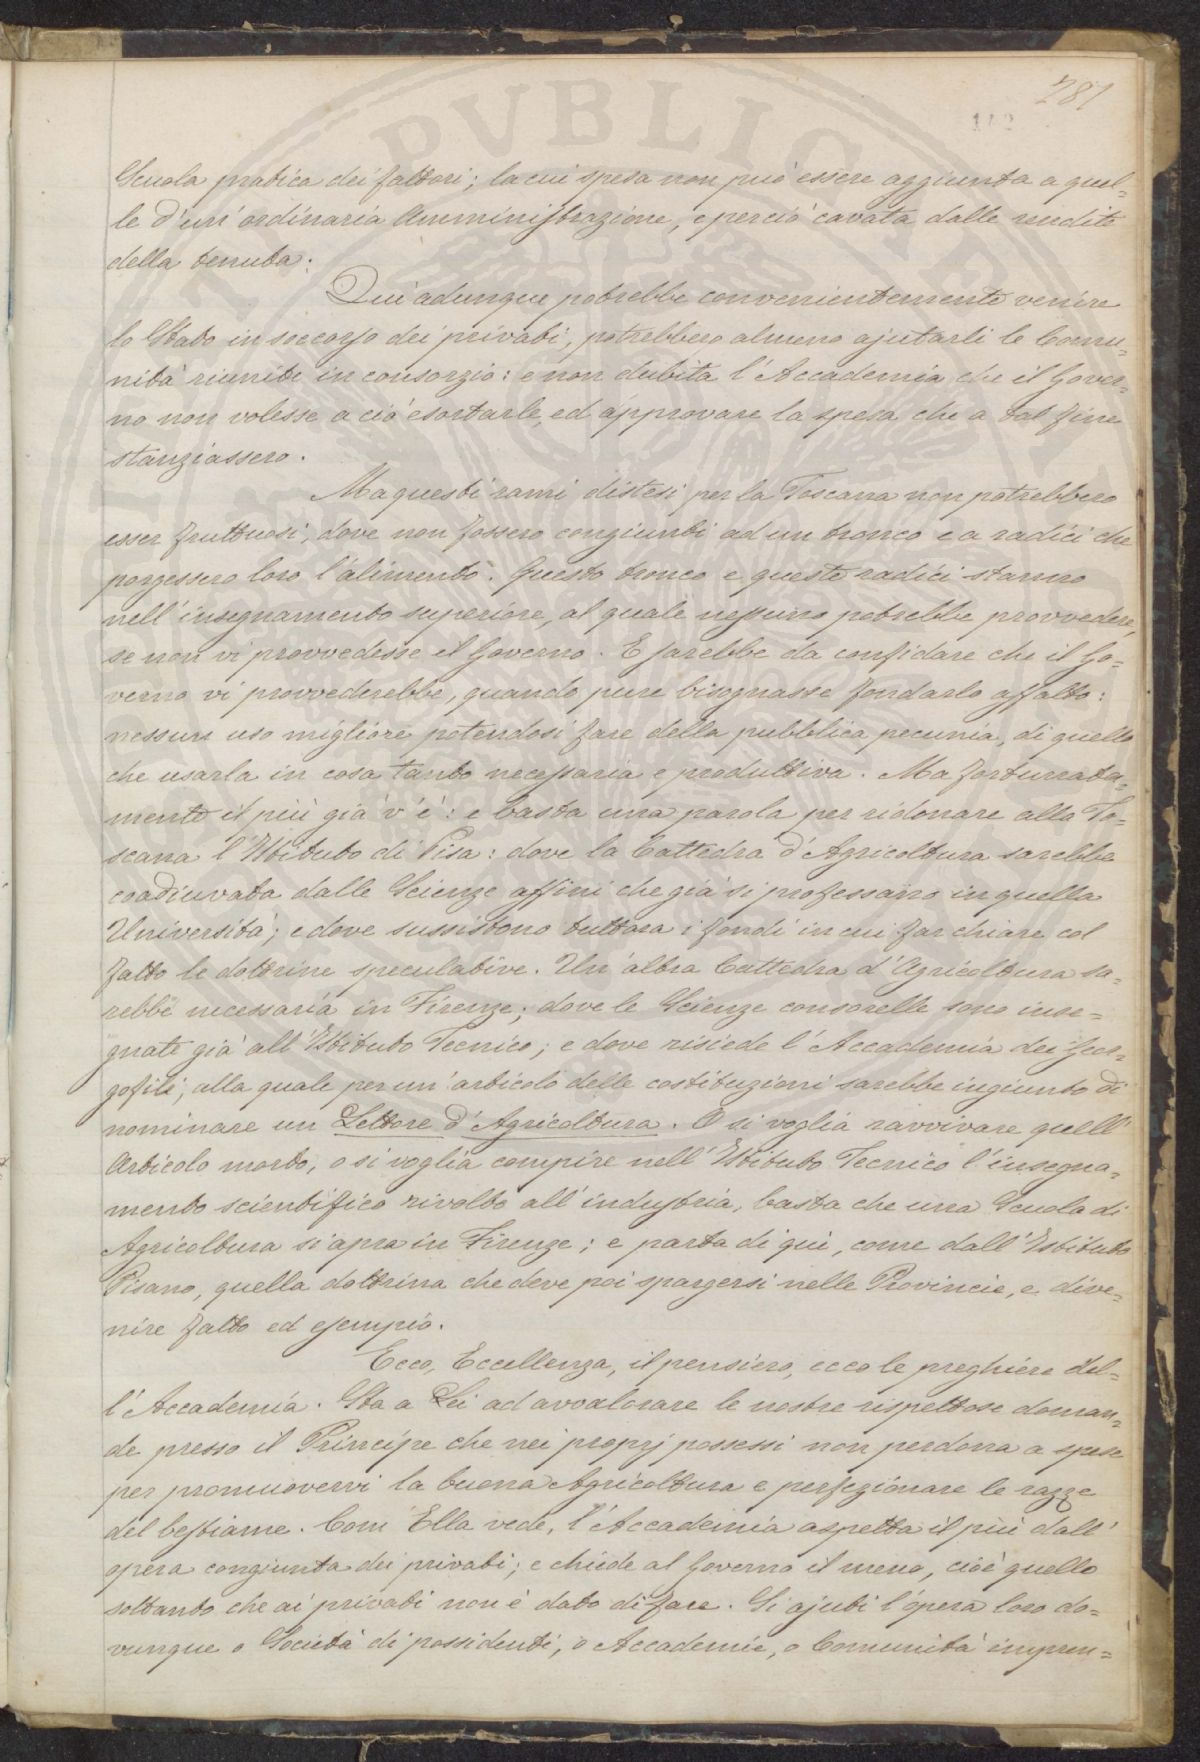 281
142
Scuola pratica dei fattori; la cui spesa non può essere aggiunta a quel=
le d'un'ordinaria Amministrazione, e perciò cavata dalle rendite
della tenuta.
Qui adunque potrebbe convenientemente venire
lo Stato in soccorso dei privati, potrebbero almeno ajutarli le Comu=
nità riunite in consorzio: e non dubita l'Accademia che il Gover=
no non volesse a ciò esortarle, ed approvare la spesa che a tal fine
stanziassero.
Ma questi rami distesi per la Toscana non potrebbero
esser fruttuosi, dove non fossero congiunti ad un tronco e a radici che
porgessero loro l'alimento. Questo tronco e queste radici stanno
nell'insegnamento superiore, al quale nessuno potrebbe provvedere,
se non vi provvedesse il Governo. E sarebbe da confidare che il Go=
verno vi provvederebbe, quando pure bisognasse fondarlo affatto:
nessun uso migliore potendosi fare della pubblica pecunia, di quello
che usarla in cosa tanto necessaria e produttiva. Ma fortunata=
mente il più già v'è: e basta una parola per ridonare alla To=
scana l'Istituto di Pisa: dove la Cattedra d'Agricoltura sarebbe
coadiuvata dalle Scienze affini che già si professano in quella
Università; e dove sussistono tuttora i fondi in cui far chiare col
fatto le dottrine speculative. Un'altra Cattedra d'Agricoltura sa=
rebbe necessaria in Firenze; dove le Scienze consorelle sono inse=
gnate già all'Istituto Tecnico; e dove risiede l'Accademia dei Geor=
gofili, alla quale per un'articolo delle costituzioni sarebbe ingiunto di
nominare un Lettore d'Agricoltura. O si voglia ravvivare quell'
Articolo morto, o si voglia compire nell'Istituto Tecnico l'insegna=
mento scientifico rivolto all'industria, basta che una Scuola di
Agricoltura si apra in Firenze; e parta di qui, come dall'Istituto
Pisano, quella dottrina che deve poi spargersi nelle Provincie, e dive=
nire fatto ed esempio.
Ecco, Eccellenza, il pensiero, ecco le preghiere del=
l'Accademia. Sta a Lei ad avvalorare le nostre rispettose doman=
de presso il Principe che nei proprj possessi non perdona a spese
per promuovervi la buona Agricoltura e perfezionare le razze
del bestiame. Com'Ella vede, l'Accademia aspetta il più dall'
opera congiunta dei privati; e chiede al Governo il meno, cioè quello
soltanto che ai privati non è dato di fare. Si ajuti l'opera loro do=
vunque o Società di possidenti, o Accademie, o Comunità impren=